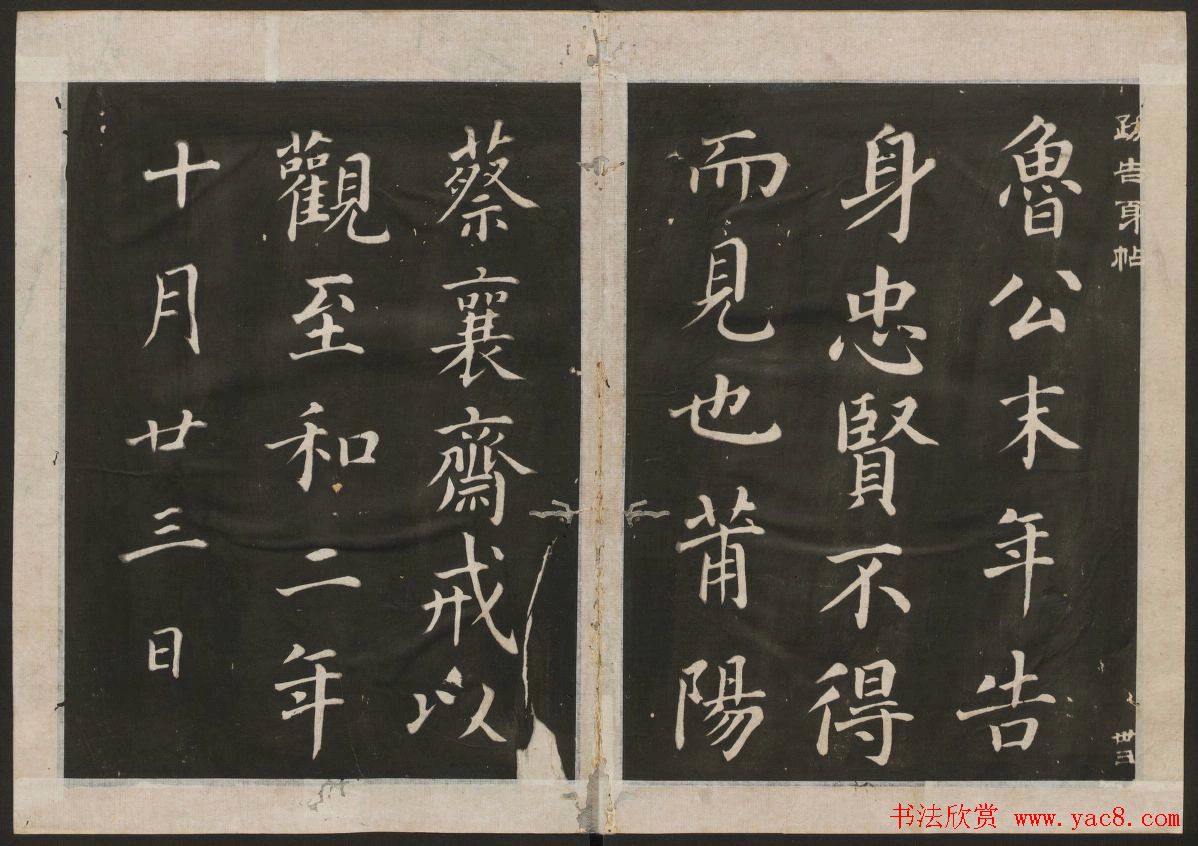 跋告身帖
魯公末年告
身忠賢不得
而見也莆陽
蔡襄齋戒以
觀至和二年
十月廿三日
书法欣赏 www.yac8.com